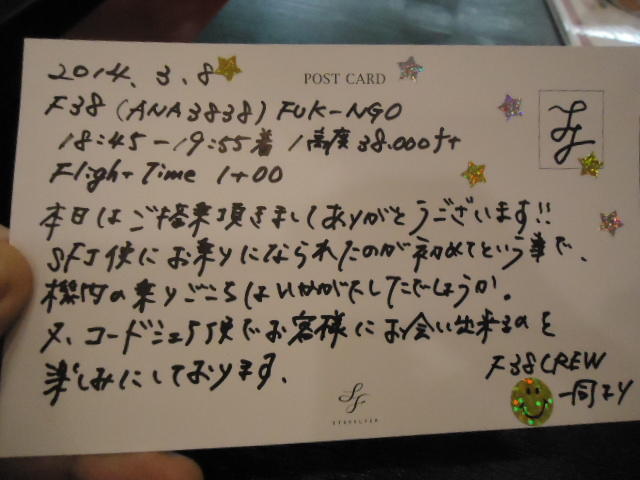 2014. 3. 8
POST CARD
F38 (ANA3838) FUK-NGO
18:45-19:55着 / 高度38.000ft
Flight Time 1+00
本日はご搭乗頂きましてありがとうございます!!
SFJ便にお乗りになられたのが初めてという事で、
機内の乗りごこちはいかがでしたでしょうか。
又、コードシェア便でお客様にお会い出来るのを
楽しみにしております。
F38CREW
一同より
SF
STARFLYER